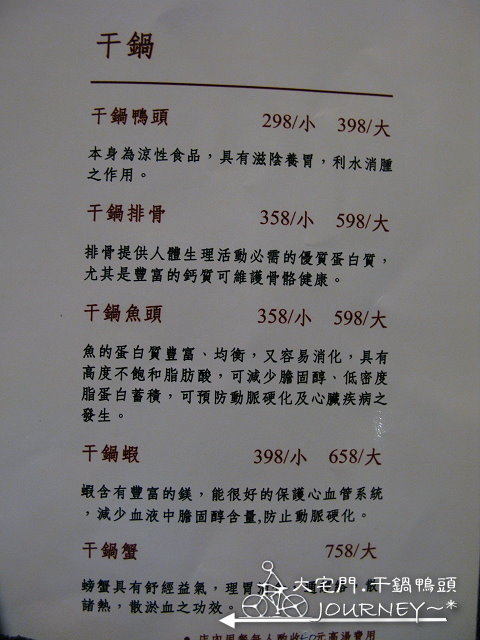 干鍋
干鍋鴨頭 298/小 398/大
本身為涼性食品，具有滋陰養胃，利水消腫
之作用。
干鍋排骨 358/小 598/大
排骨提供人體生理活動必需的優質蛋白質，
尤其是豐富的鈣質可維護骨骼健康。
干鍋魚頭 358/小 598/大
魚的蛋白質豐富、均衡，又容易消化，具有
高度不飽和脂肪酸，可減少膽固醇、低密度
脂蛋白蓄積，可預防動脈硬化及心臟疾病之
發生。
干鍋蝦 398/小 658/大
蝦含有豐富的鎂，能很好的保護心血管系統
，減少血液中膽固醇含量,防止動脈硬化。
干鍋蟹 758/大
螃蟹具有舒經益氣，理胃消
諸熱，散淤血之功效。
大宅門.干鍋鴨頭
JOURNEY~*
元高湯費用